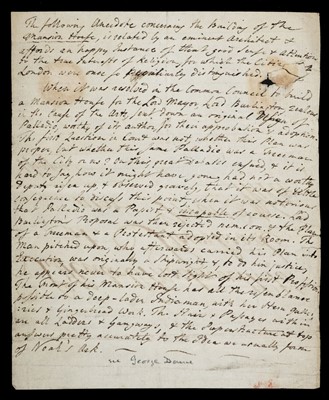 The following Anecdote concerning the Building of the
Mansion House, is related by an eminent Architect and
affords an happy Instance of that good Sense & Attention
to the true Interests of Religion, for which the Citizens of
London were once so peculiarly distinguished.
When it was resolved in the Common Council to build
a Mansion House for the Lord Mayor, Lord Burlington zealous
in the Cause of the Arts, sent down an original Design of
Palladio, worthy of its author, for their approbation & adoption.
The first Question in Court was not whether this Plan was
proper, but whether this same Palladio was a Freeman
of the City or no? On this great debates ensued, & it is
hard to say how it might have gone, had not a worthy
Deputy risen up & observed gravely, that it was of little
consequence to discuss this point, when it was notorious
that Palladio was a Papist, & incapable of course. Lord
Burlington's Proposal was then rejected nem. con. & the Plan
of a Freeman & a Protestant adopted in its Room. The
Man pitched upon, who afterwards carried his Plan into
Execution was originally a Shipwright & to do him justice,
he appears never to have lost sight of his first Profession.
The front of his Mansion House has all the resemblance
possible to a deep-laden Indiaman, with her Stern Galle-
ries & Gingerbread Work. The Stairs & Passages within
are all Ladders & Gangways, & the Superstructure at top
answers pretty accurately to the Idea we usually form
of Noah's Ark.
George Dance